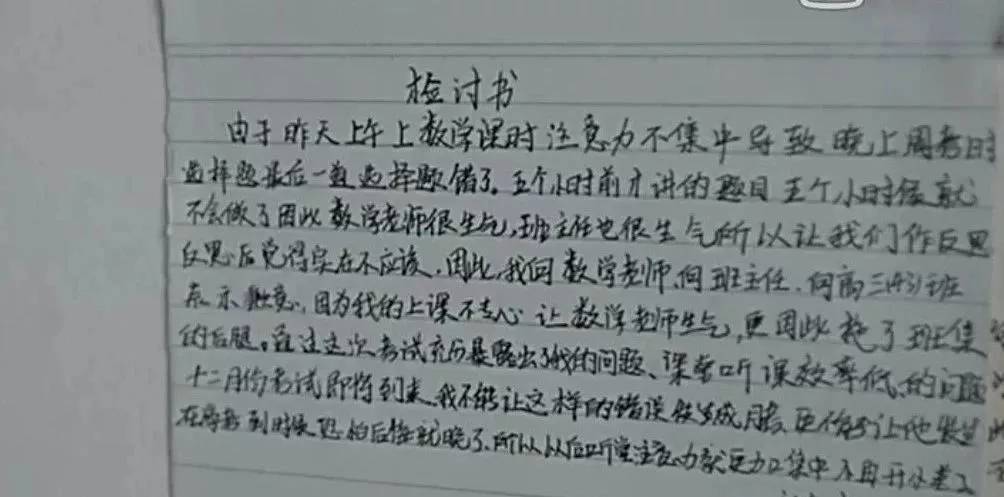 检讨书
由于昨天上午上数学课时注意力不集中导致晚上周考时
选择题最后一道选择题错了。五个小时前才讲的题目五个小时后就
不会做了因此数学老师很生气,班主任也很生气所以让我们作反思
反思后觉得实在不应该,因此,我向数学老师、向班主任、向高三班
表示歉意,因为我的上课不专心让数学老师生气,更因此拖了班集
的后腿。通过这次考试充分暴露出了我的问题、课堂听课效率低的问题
十二月份考试即将到来,我不能让这样的错误变成更不能让他发生
在到时候恐怕后悔就晚了,所以以后听课注意力就更加集中不再开小差了